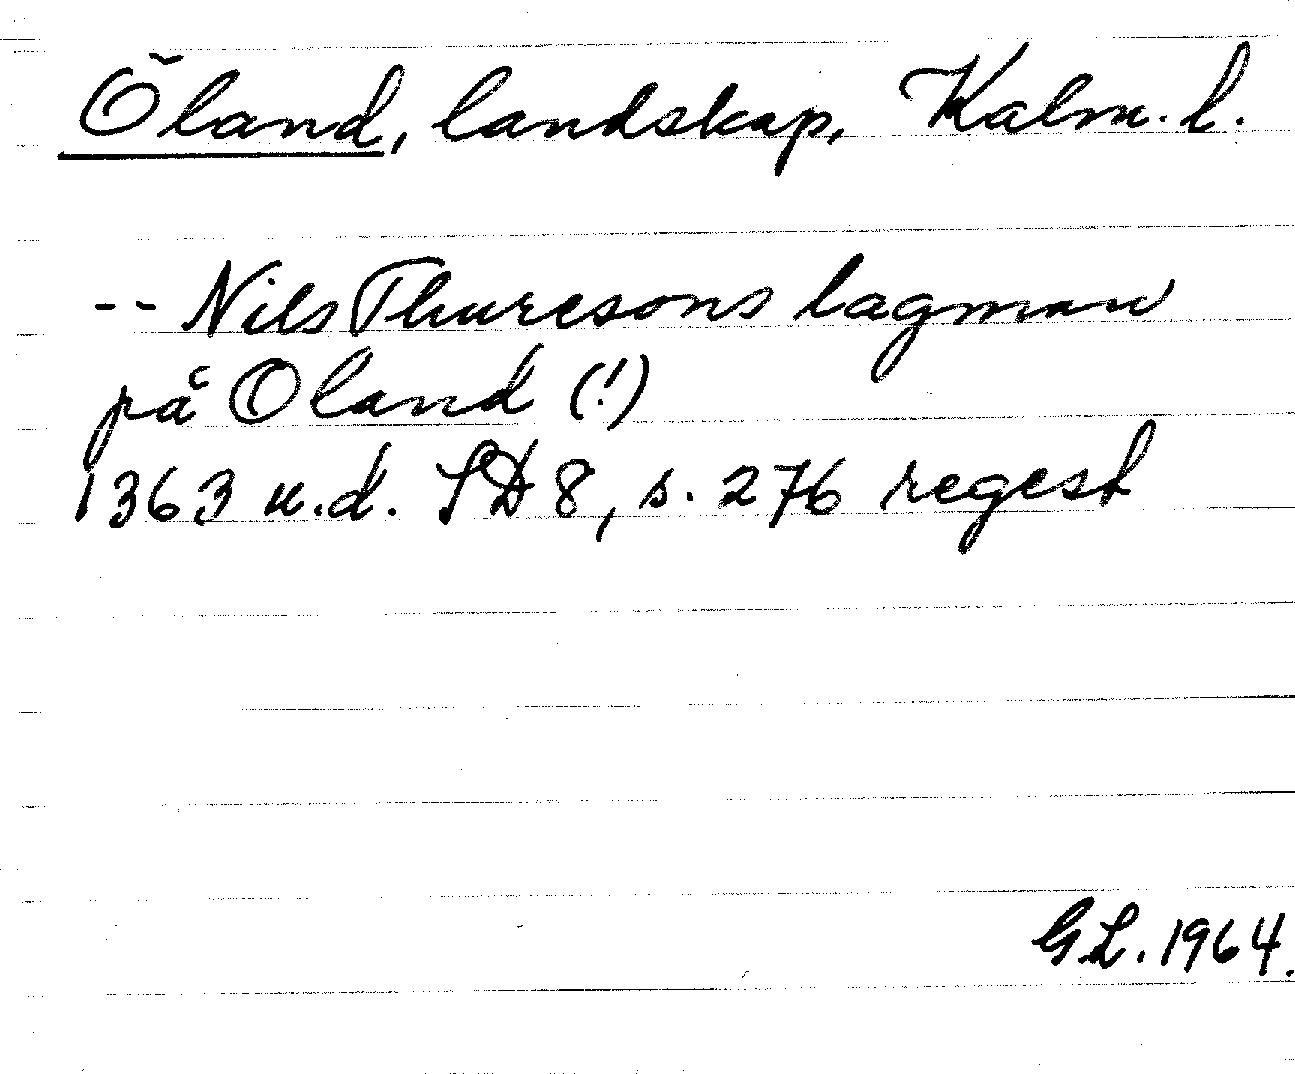 Öland, landskap, Kalm. l.
-- Nils Thuresons lagman
på Oland (!)
1363 u.d. SD 8, s. 276 regest
GL. 1964.